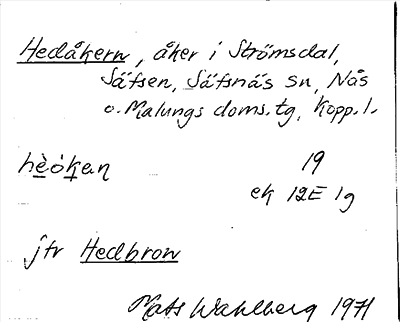 Hedåkern, åker i Strömsdal,
Säfsen, Säfsnäs sn, Nås
o. Malungs doms.tg, Kopp.l.
hèòkan 19
ek 12E 1g
jfr Hedbron
Mats Wahlberg 1971